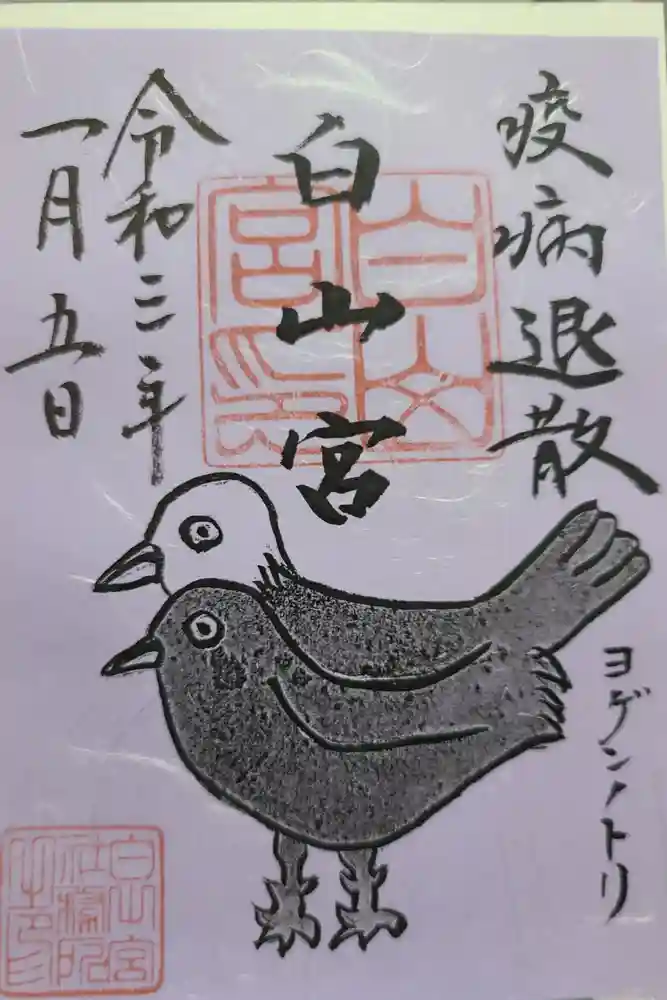 疫病退散
白山宮
令和三年
一月五日
ヨゲンノトリ
白山宮印